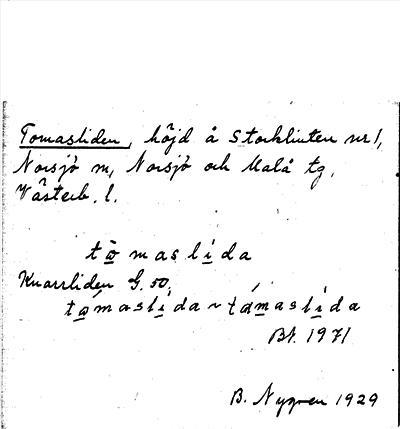 Tomasliden, höjd å Storklinten nr 1,
Norsjö sn, Norsjö och Malå tg,
Västerb. l.
tò̲maslí̲da
Knarrliden G. 50,
tó̲maslí̲da ~ tóm̲aslí̲da
Bt. 1971
B. Nygren 1929